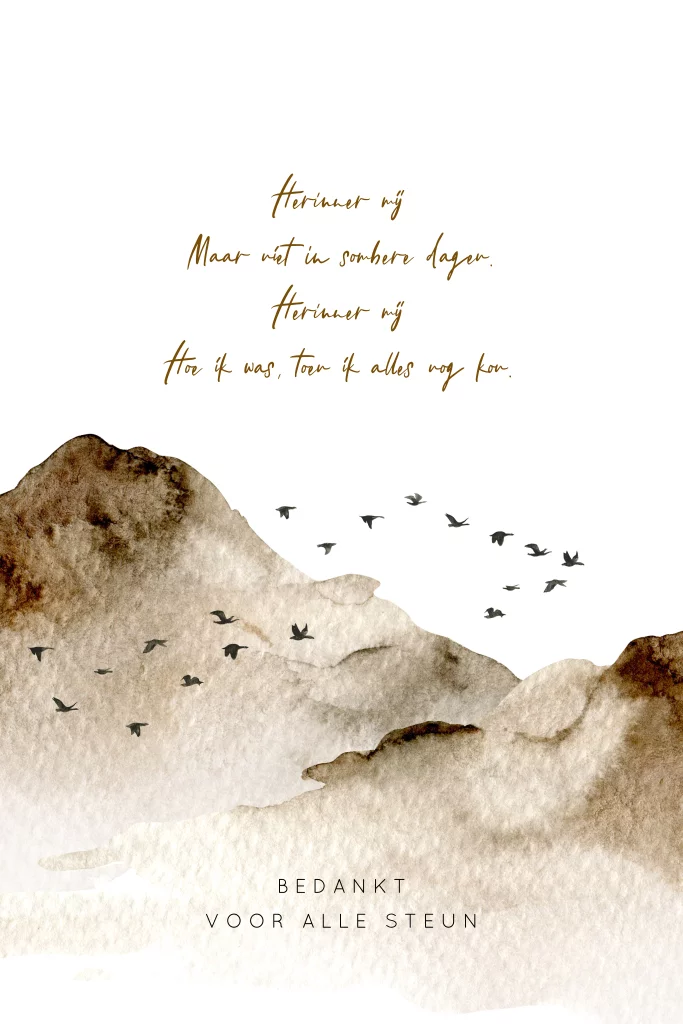 Herinner mij
Maar niet in sombere dagen.
Herinner mij
Hoe ik was, toen ik alles nog kon.
BEDANKT
VOOR ALLE STEUN